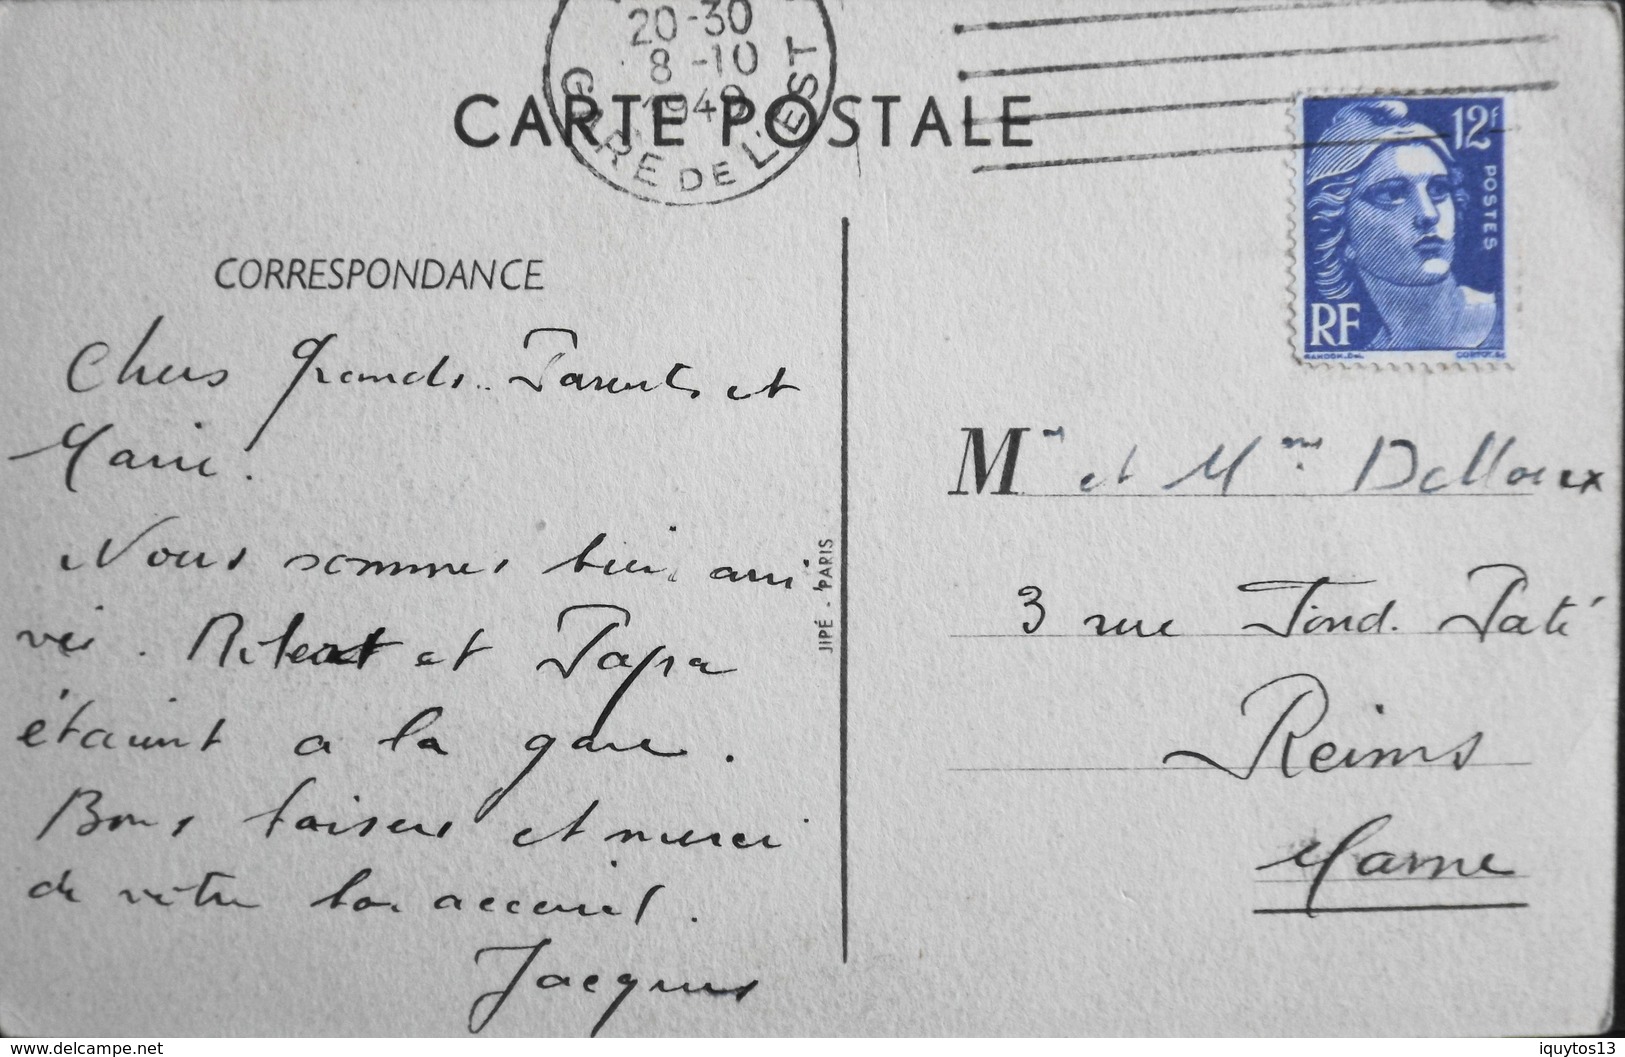 20-30
8 -10
GARE DE L'EST
CARTE POSTALE
12F
POSTES
RF
CORRESPONDANCE
Chers Grands-Parents et
Marie.
Nous sommes bien arri
vés. et Papa
étaient a la gare.
Bons baisers et merci
de votre bon accueil.
Jacques
JIPÉ - PARIS
Mr et Mme Delloux
3 rue Fond. Paté
Reims
Marne
www.delcampe.net
iquytos13